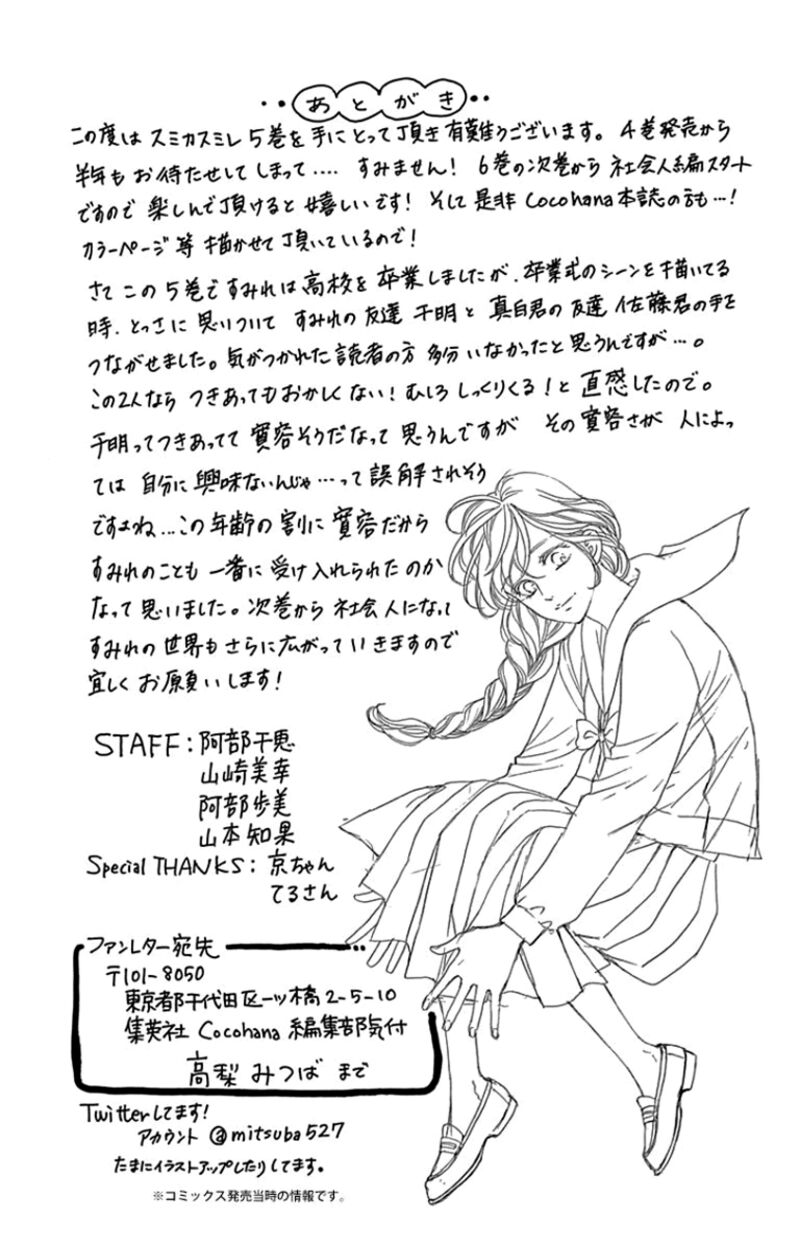 あとがき
この度は スミカスミレ 5巻を 手にとって頂き 有難うございます。 4巻発売から
半年も お待たせして しまって‥‥ すみません! 6巻の次巻から 社会人編スタート
ですので 楽しんで頂けると 嬉しいです! そして 是非 Cocohana本誌の方も…!
カラーページ等 描かせて 頂いているので!
さて この 5巻で すみれは 高校を 卒業しましたが、卒業式のシーンを描いてる
時、とっさに 思いついて すみれの 友達 千明と 真白君の 友達 佐藤君の手を
つながせました。気がつかれた 読者の方 多分 いなかったと 思うんですが…。
この2人なら つきあっても おかしくない! むしろ しっくりくる!と 直感したので。
千明って つきあってて 寛容そうだなって 思うんですが その 寛容さが 人によっ
ては 自分に 興味ないんじゃ…って 誤解されそう
ですよね…この 年齢の 割に 寛容だから
すみれのことも 一番に 受け入れられたのか
なって 思いました。次巻から 社会人になって
すみれの 世界も さらに 広がって いきますので
宜しく お願いします!
STAFF:阿部千恵
山崎美幸
阿部歩美
山本知果
Special THANKS: 京ちゃん
てるさん
ファンレター宛先
〒101-8050
東京都千代田区一ツ橋2-5-10
集英社 Cocohana 編集部気付
高梨 みつば まで
Twitterしてます!
アカウント @mitsuba527
たまにイラストアップしたりしてます。
※コミックス発売当時の情報です。